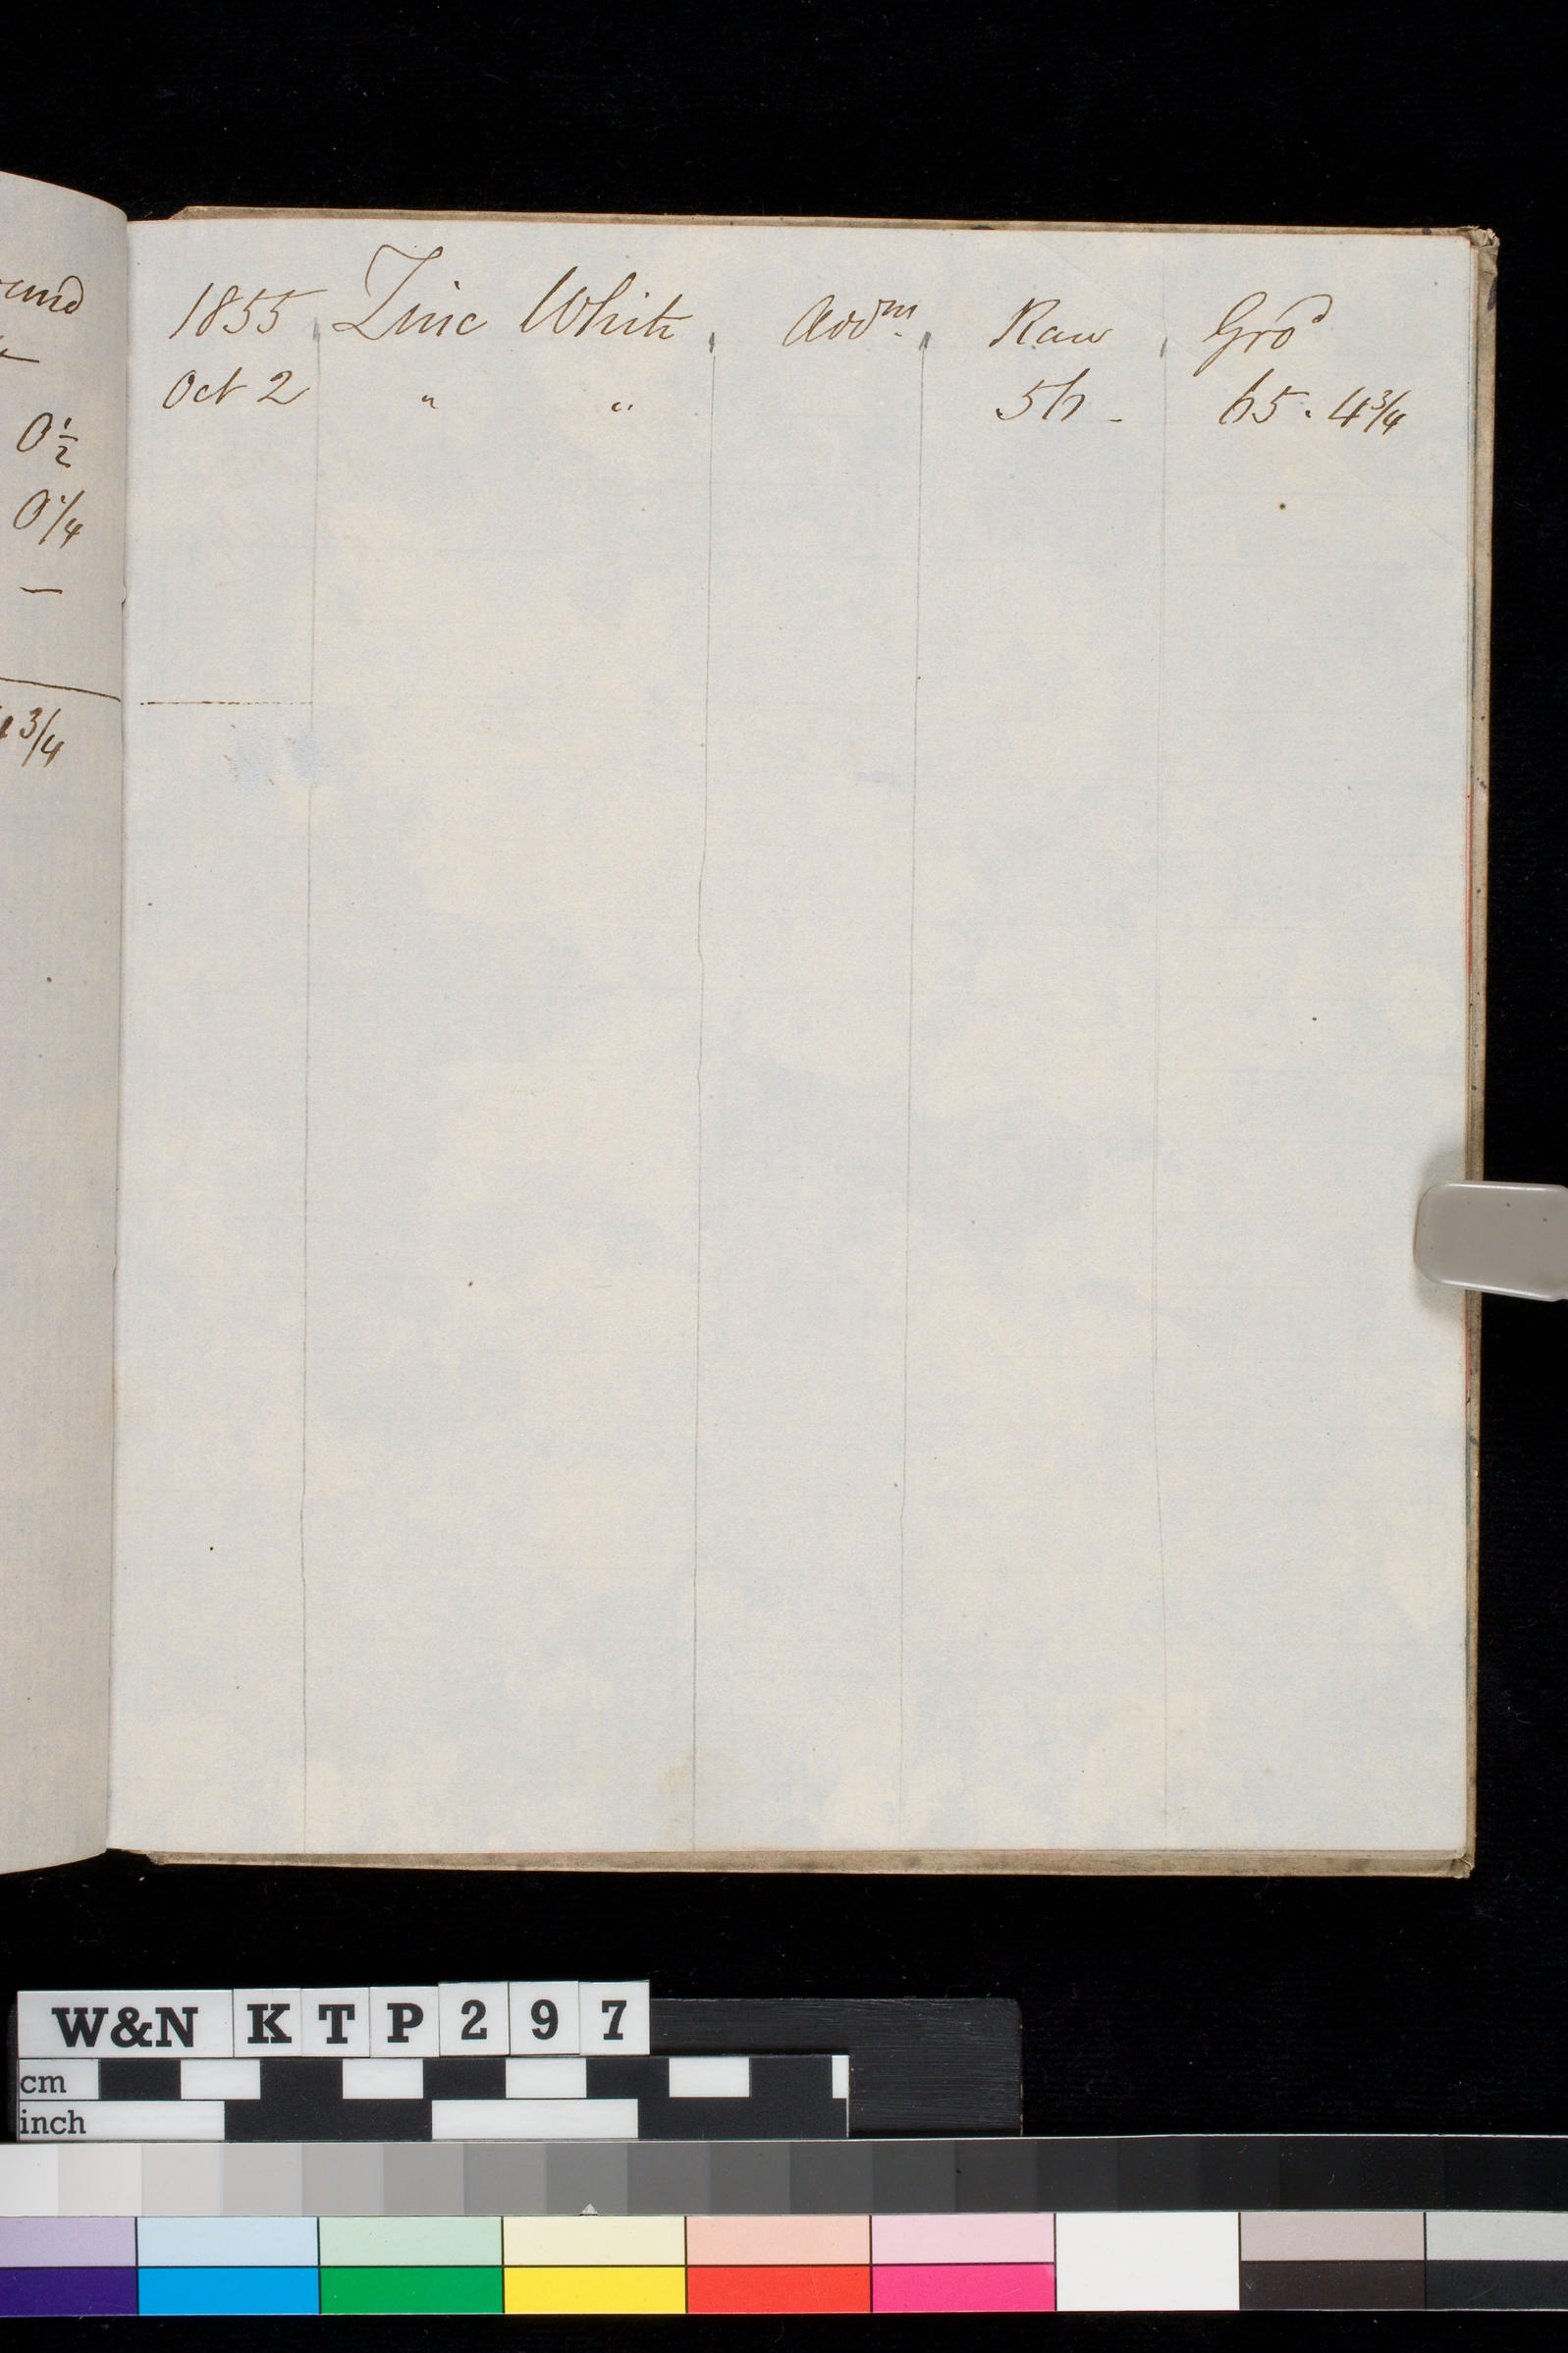 und
0½
0¼
—
3/4
1855 Zinc White Addm. Raw Gro^d
Oct 2 " " 56 - 65 . 4¾
W&N KTP297
cm
inch